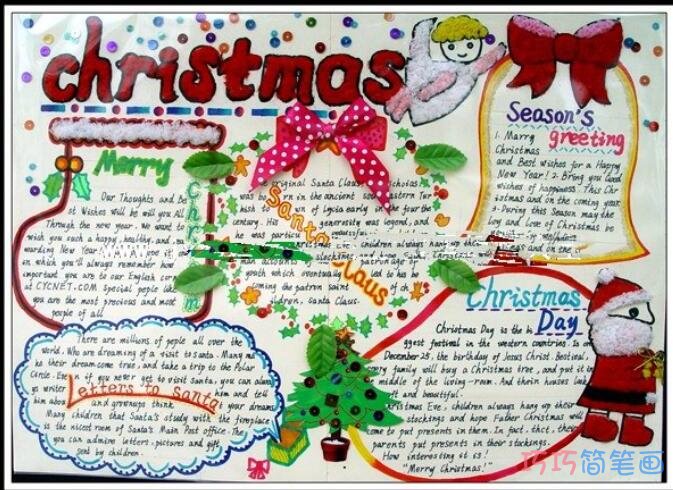 christmas
Merry
Christm
Our Thoughts and Be
st Wishes will be will you All
Through the new year. We want to
wish you such a happy, healthy, and
warding New Year
in which you'll always remember how
important you are to our English corn
at CYCNET.COM Special peple like
you are the most precious and most
people of all
Season's
greeting
1. Marry
Christmas
and Best wishes for a Happy
New Year! 2. Bring you Good
wishes of happiness. This Chr
istmas and on the coming year
3. During this Season may the
joy and love of Christmas be
Santa Claus
original Santa Claus
was born in the ancient
of Lycia early in the fourth
century. His generosity was legend, and
was particu
children always hang up the
stockings and hope
man accounts patronage of
youth which eventually led to his be
coming the patron saint of ch
ildren, Santa Claus.
Letters to santa
There are millions of peple all over the
world. Who are dreaming of a visit to Santa. Many ma
ke their dream come true, and take a trip to the Polar
Circle. if you never get to visit santa, you can always
writer him and tell
him about and grownups think your dreams
Many children that Santa's study with the fireplace
is the nicest room of Santa's Main Post office. The
you can admire letters, pictures and gift
sent by children.
Christmas
Day
Christmas Day is the bi
ggest festival in the western countries. Is on
December 25, the birthday of Jesus Christ.
every family will buy a Christmas tree, and put it in
middle of the living-room. And their houses look
and beautiful.
Christmas Eve, children always hang up their
stockings and hope Father Christmas will
come to put presents in them. In fact, thet, their
parents put presents in their stockings.
How interesting it is!
"Merry Christmas!"
巧巧简笔画